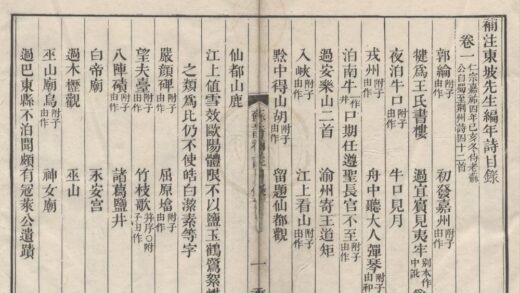 補注東坡先生編年詩目錄
卷一 仁宗嘉祐四年己亥冬侍老蘇公自蜀至荊州詩四十二首
郭綸 附子由作 初發嘉州 附子由作
犍爲王氏書樓 過宜賓見夷牢 別本作中
夜泊牛口 附子由作 牛口見月
戎州 附子由作 舟中聽大人彈琴 附子由和
泊南牛 一作井 口期任遵聖長官不至 附子由作
過安樂山二首 渝州寄王道矩
入峽 附子由作 江上看山 附子由作
黔中得山胡 附子由作 留題仙都觀
仙都山鹿
一
江上值雪效歐陽體限不以鹽玉鶴鷺絮
之類爲比仍不使皓白潔素等字
嚴顏碑 附子由作 屈原塔 附子由作
望夫臺 附子由作 竹枝歌 并序〇附子由作
八陣磧 附子由作 諸葛鹽井
白帝廟 永安宮
過木櫪觀 巫山
巫山廟烏 附子由作 神女廟
過巴東縣不泊聞頗有寇萊公遺蹟